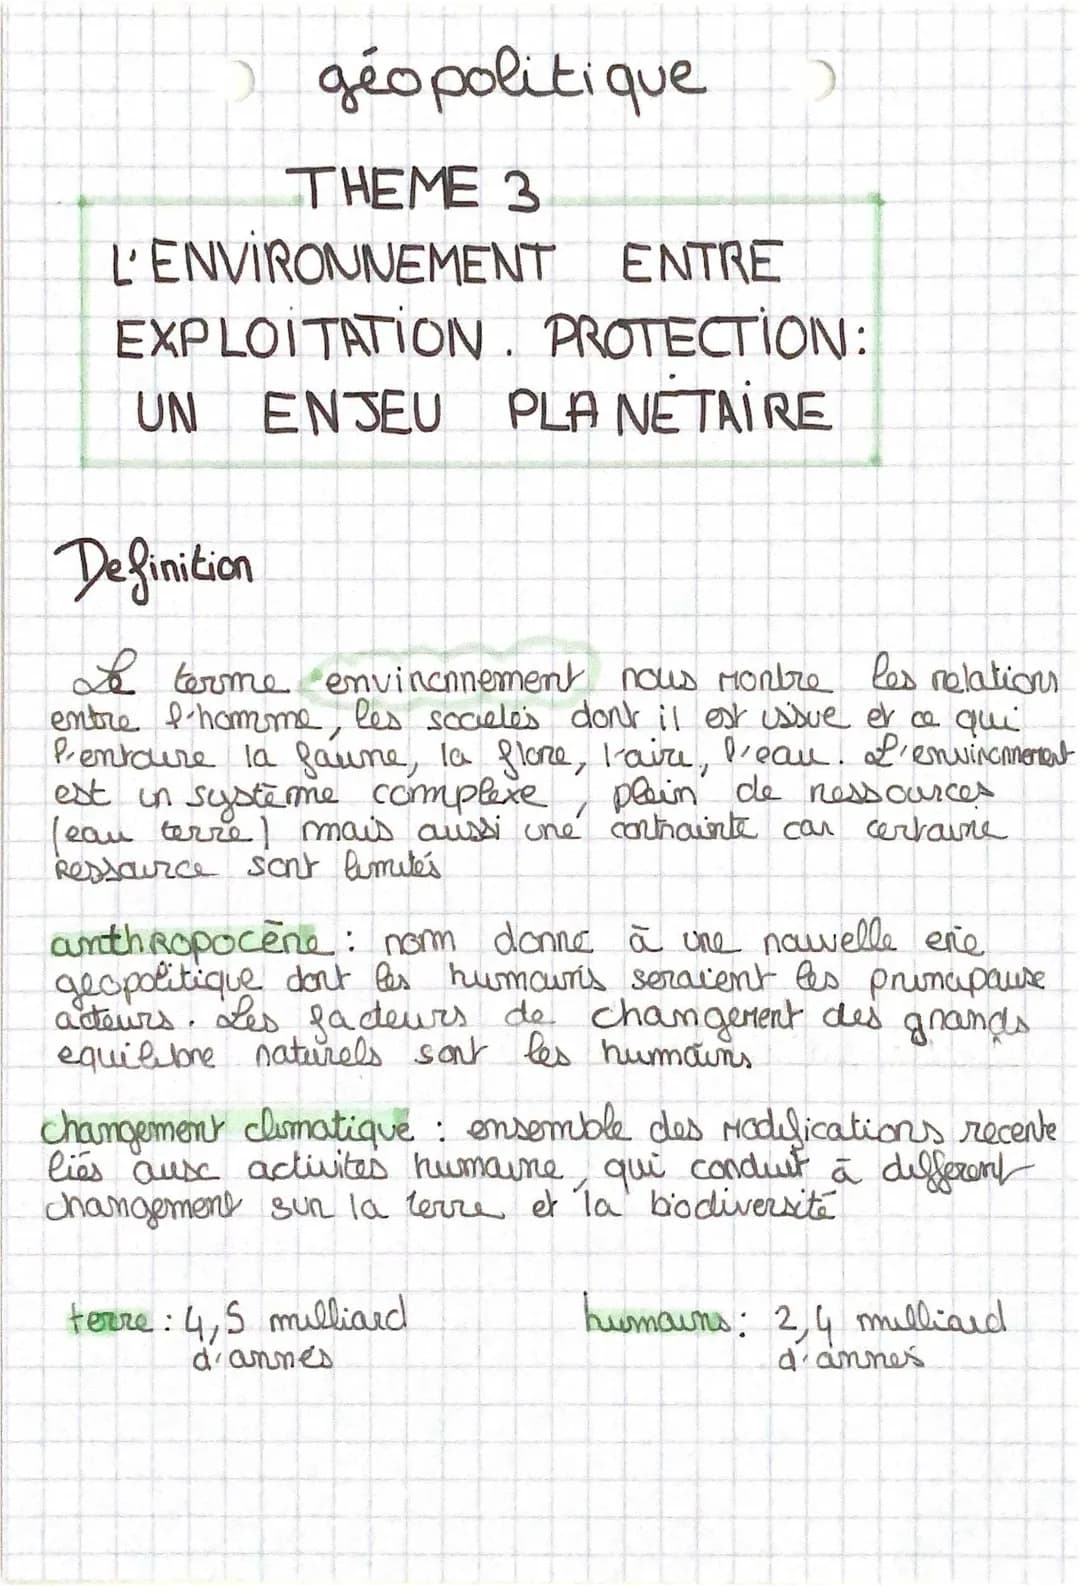 géopolitique
THEME 3
L'ENVIRONNEMENT ENTRE
EXPLOITATION. PROTECTION:
UN ENJEU PLANÉTAIRE
Definition
Le terme environnement nous montre les relations
entre l'homme, les sociétés dont il est issue et ce qui
l'entoure la faune, la flore, l'aire, l'eau. L'environnement
est un système complexe, plein de ressources
(eau terre) mais aussi une contrainte car certaine
Ressource sont limités
anthropocène : nom donné à une nouvelle erie
geopolitique dont les humains seraient les principaux
acteurs. Les facteurs de changement des grands
equilibre naturels sont les humains
changement climatique : ensemble des modifications recente
liés aux activites humaine, qui conduit à different
changement sur la terre et la biodiversité
terre : 4,5 milliard humains : 2,4 milliard
d'annés d'annés